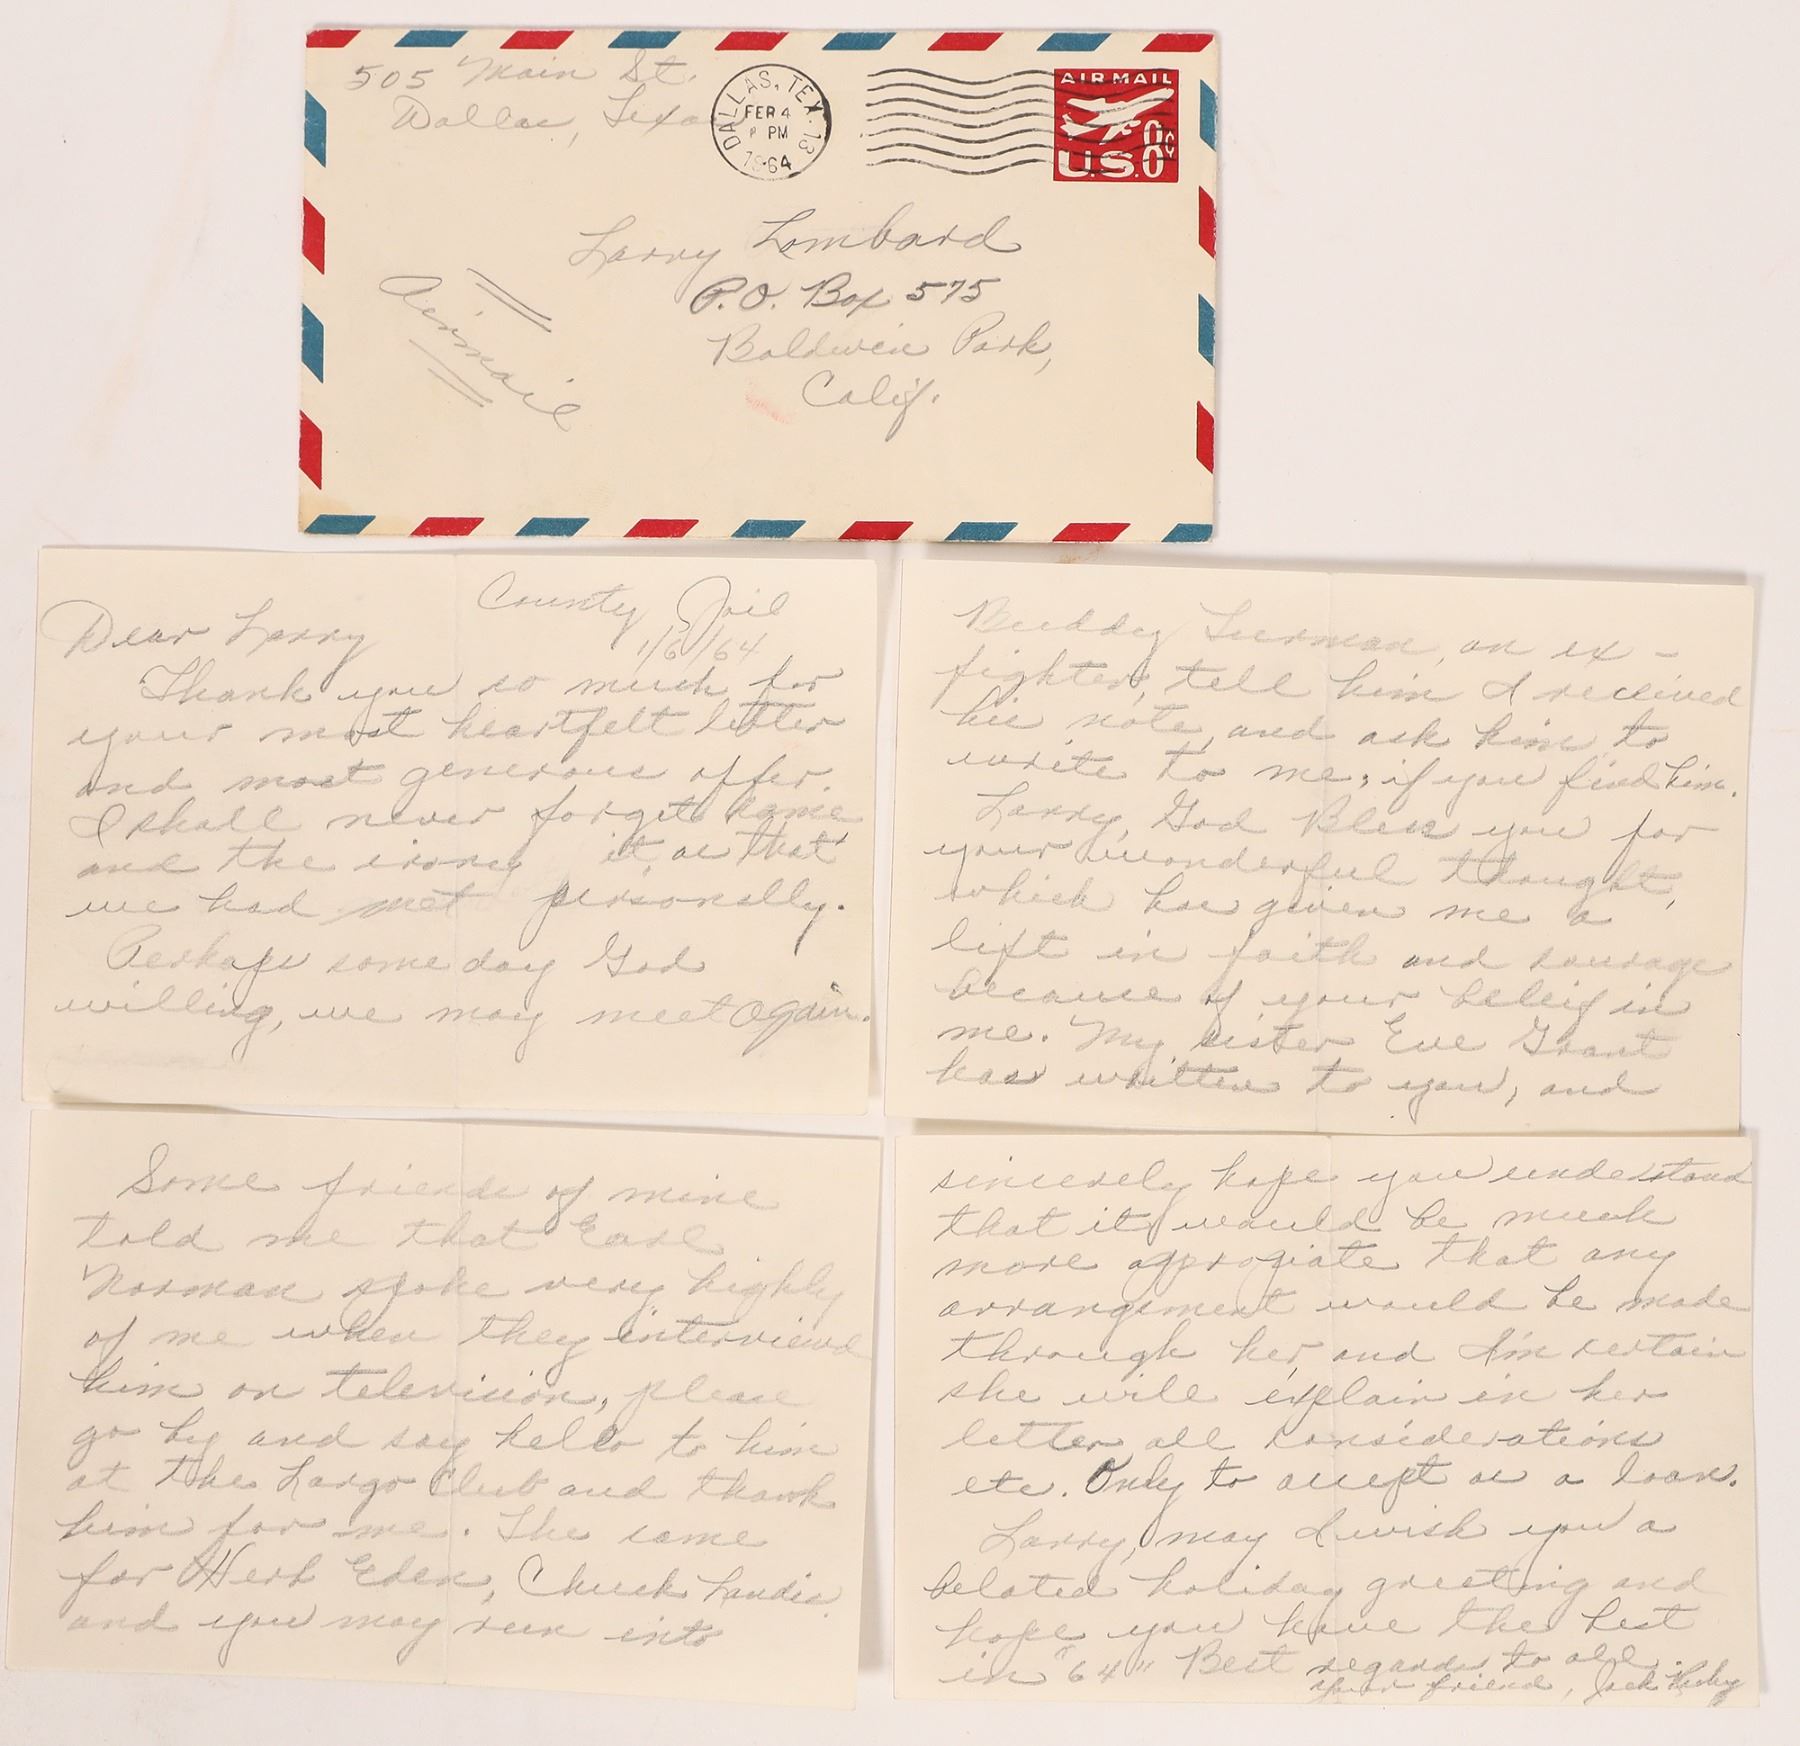 505 Main St.
Dallas, Texas
DALLAS, TEX. 13
FEB 4
PM
1964
AIR MAIL
U.S.
Larry Lombard
P.O. Box 575
Baldwin Park,
Calif.
Airmail
County Jail
1/6/64
Dear Larry
Thank you so much for
your most heartfelt letter
and most generous offer.
I shall never forget same
and the irony it, as that
we had met personally.
Perhaps some day God
willing, we may meet again.
Some friends of mine
told me that Earl
Norman spoke very highly
of me when they interviewd
him on television, please
go by and say hello to him
at the Largo Club and thank
him for me. The same
for Herb Eden, Chuck Landis.
and you may run into
Buddy Turman, an ex-
fighter, tell him I received
his note, and ask him to
write to me, if you find him.
Larry, God Bless you for
your wonderful thought,
which has given me a
lift in faith and courage
because of your beleif in
me. My sister Eve Grant
has written to you, and
sincerely hope you understand
that it would be much
more appropiate that any
arrangement would be made
through her, and I'm certain
she will explain in her
letter all considerations
etc. Only to accept as a loan.
Larry, may I wish you a
belated holiday greeting and
hope you have the best
in "64" Best regards to all.
Your friend, Jack Ruby